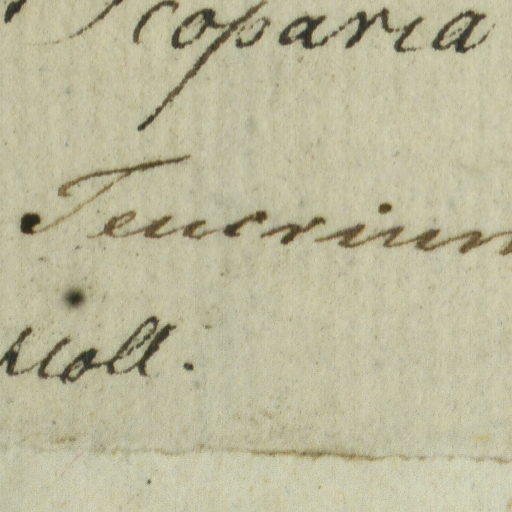 Scoparia
Teucrium
coll.